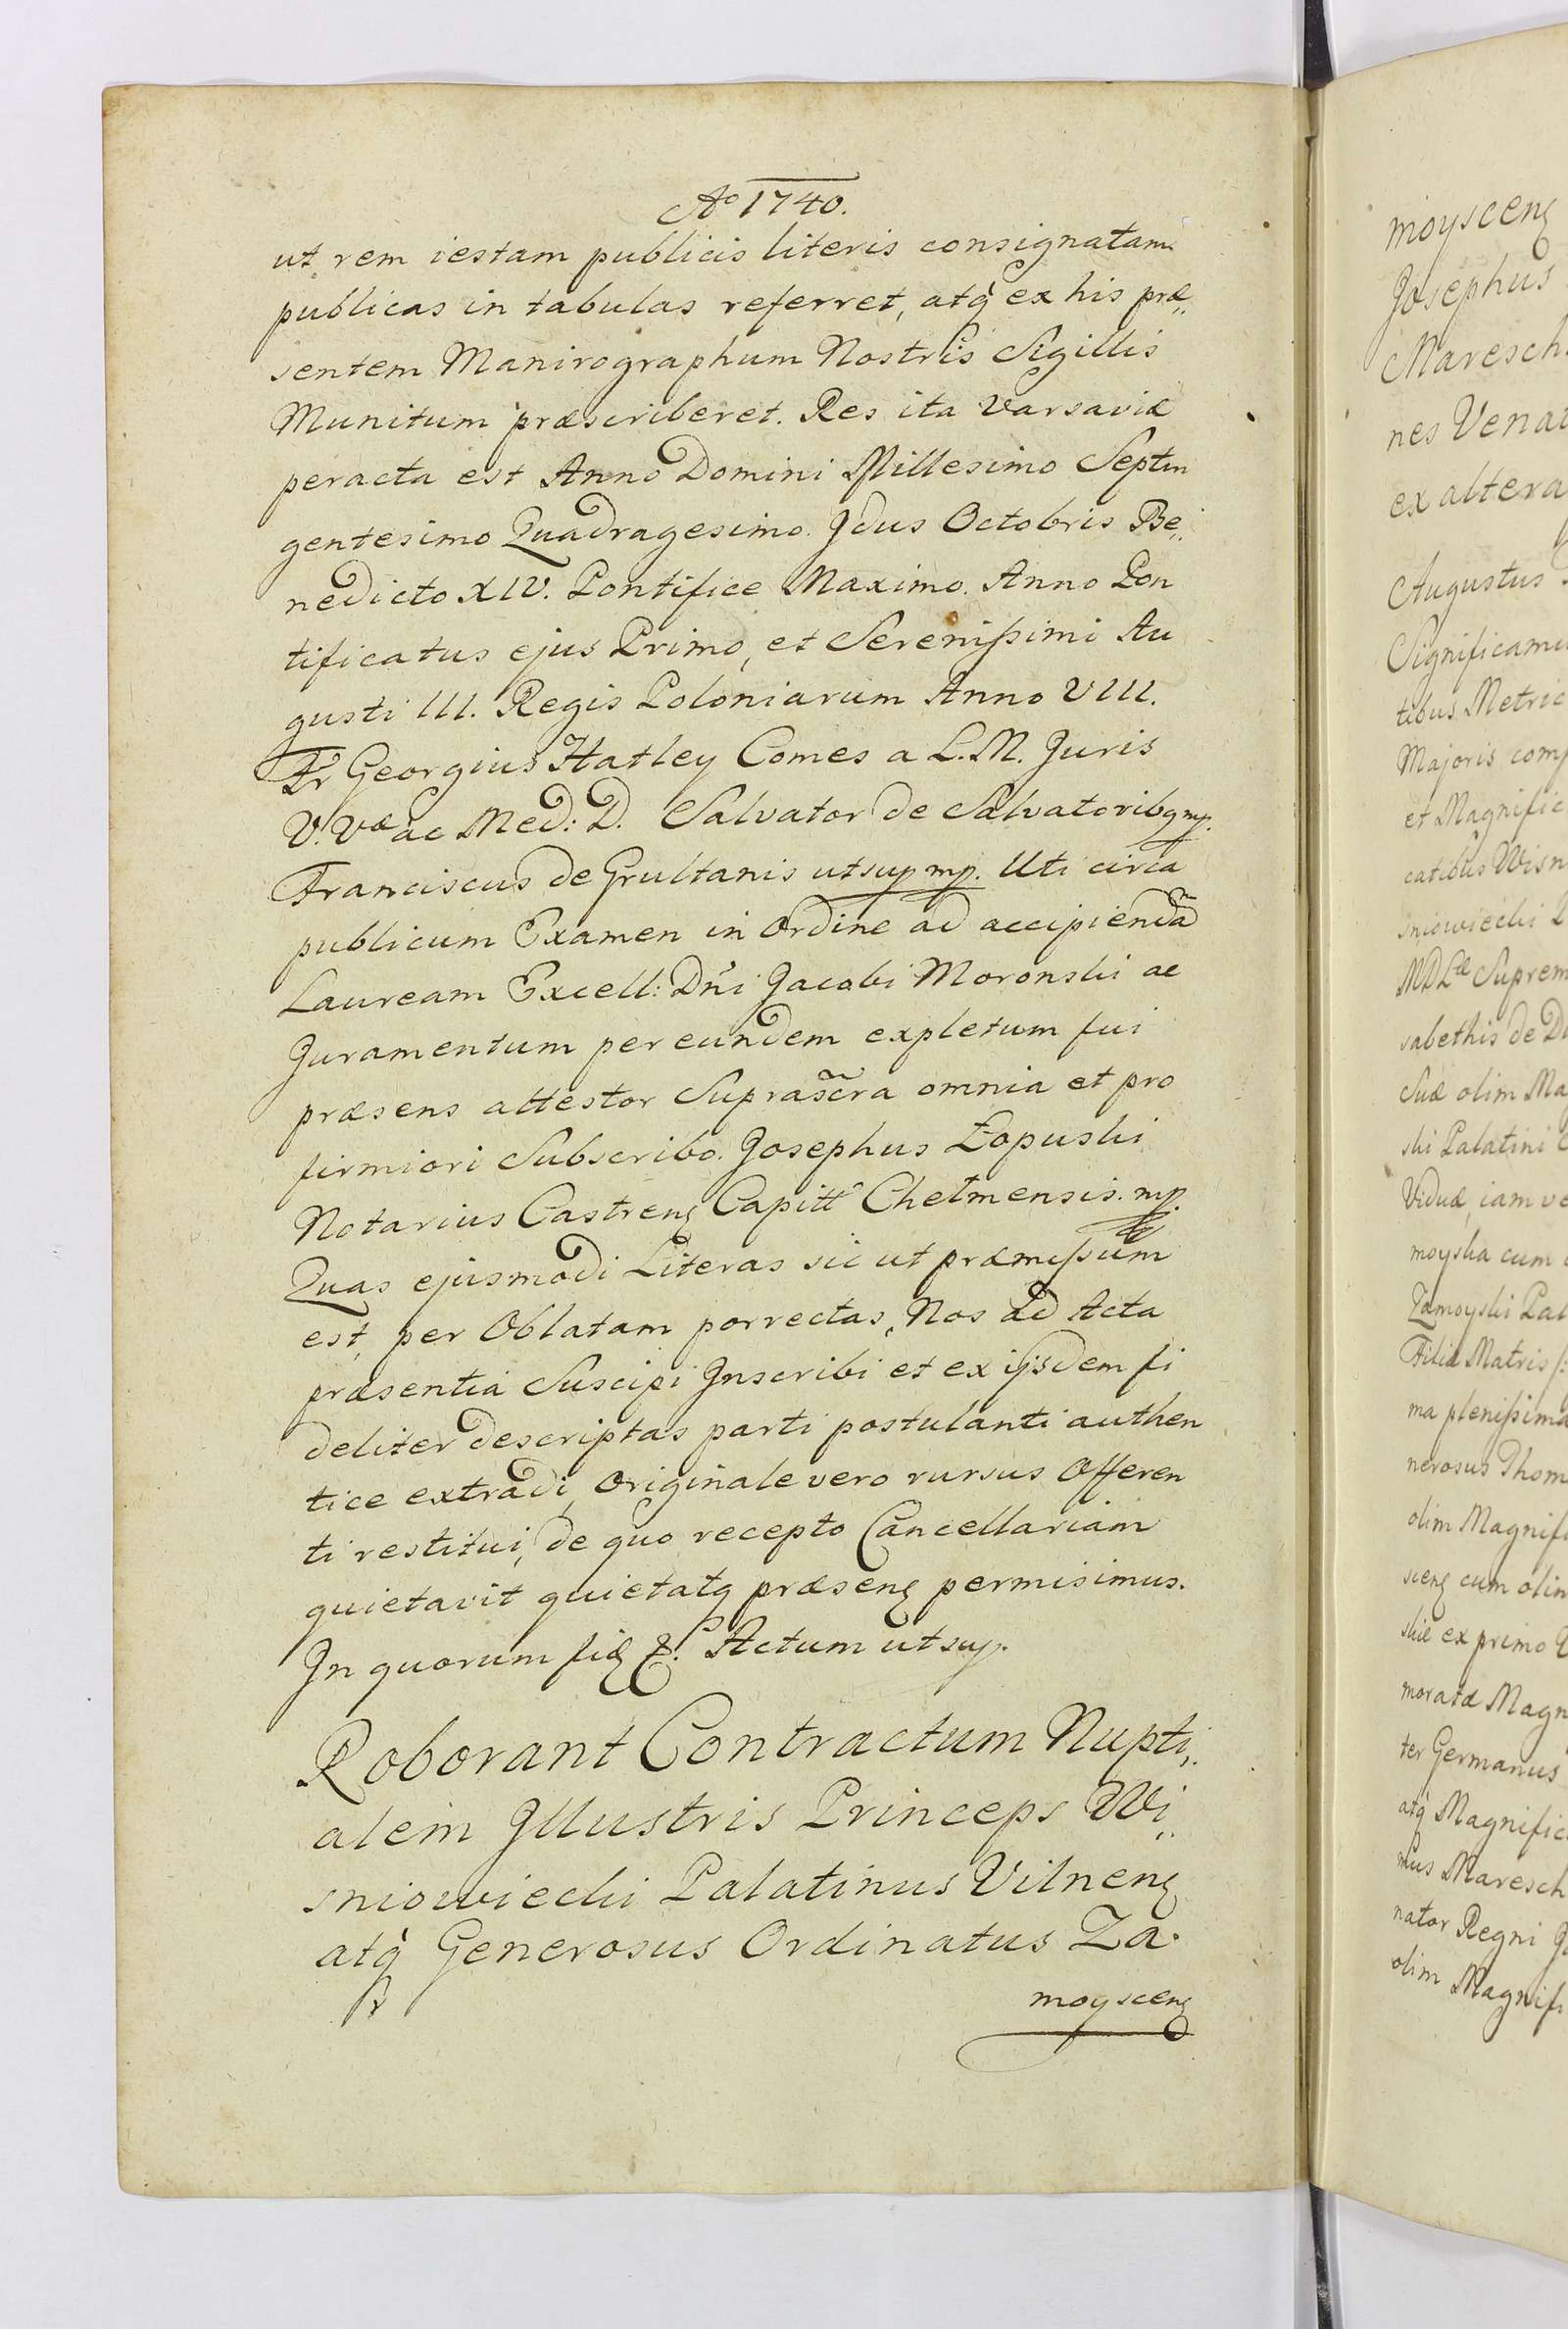 Ao 1740.
ut rem iestam publicis literis consignatam
publicas in tabulas referret, atq ex his præ„
sentem Manirographum Nostris Sigillis
Munitum præscriberet. Res ita Varsaviæ
peracta est Anno Domini Millesimo Septin
gentesimo Quadragesimo. Jdus Octobris Be„
nedicto XIV. Pontifice Maximo. Anno Pon
tificatus ejus Primo, et Serenißimi Au
gusti III. Regis Poloniarum Anno VIII.
Fr Georgius Hatley Comes a L. M. Juris
V. Væ ac Med: D. Salvator de Salvatoribq mp.
Franciscus de Grultanis ut sup mp. Uti circa
publicum Examen in Ordine ad accipiendã
Lauream Excell: Dni Jacobi Moronski ac
Juramentum per eundem expletum fui
præsens attestor Suprascra omnia et pro
firmiori Subscribo. Josephus Łopuski
Notarius Castrenq Capitt Chełmensis. mp.
Quas ejusmodi Literas sic ut præmißum
est, per Oblatam porrectas, Nos ad Acta
præsentia Suscipi Jnscribi et ex ijsdem fi
deliter descriptas parti postulanti authen
tice extradi, Originale vero rursus Offeren
ti restitui, de quo recepto Cancellariam
quietavit quietatq præsenq permisimus.
Jn quorum fid &. Actum ut sup.
Roborant Contractum Nupti„
alem Jllustris Princeps Wi„
sniowiecki Palatinus Vilnenq
atq Generosus Ordinatus Za„
moyscenq
moyscenq
Josephus
Maresch
nes Vena
ex altera
Augustus
Significamu
tibus Metric
Majoris comp
et Magnific
catibus Wisn
sniowiecki
MDLæ Suprem
sabethis de D
Suæ olim Ma
ski Palatini
Viduæ, iam ve
moyska cum
Zamoyski Pal
Filiæ Matris
ma plenißima
nerosus Thom
olim Magnifi
scenq cum olim
skie ex primo
moratæ Magn
ter Germanus
atq Magnific
mus Maresch
nator Regni
olim Magnifi